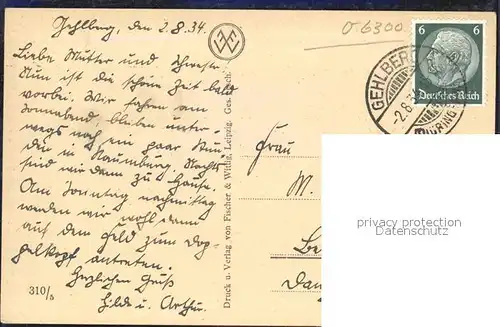 Gehlberg, den 2.8.34.
Liebe Mutter und
Nun ist die schöne Zeit bald
vorbei. Wir fahren am
Sonnabend, bleiben unter-
wegs noch ein paar Stun
in Naumburg. Nachts
sind wir dann zu Hause.
Am Sonntag nachmittag
werden wir wohl dann
auf dem Feld zum Dop-
pelkopf antreten.
Herzlichen Gruß
Hilde u. Arthur.
310/5
Druck u. Verlag von Fischer & Wittig, Leipzig. Ges. gesch.
0-6300
6 6
Deutsches Reich
GEHLBERG
2.8.3
Frau
M.
Be
Dan
privacy protection
Datenschutz